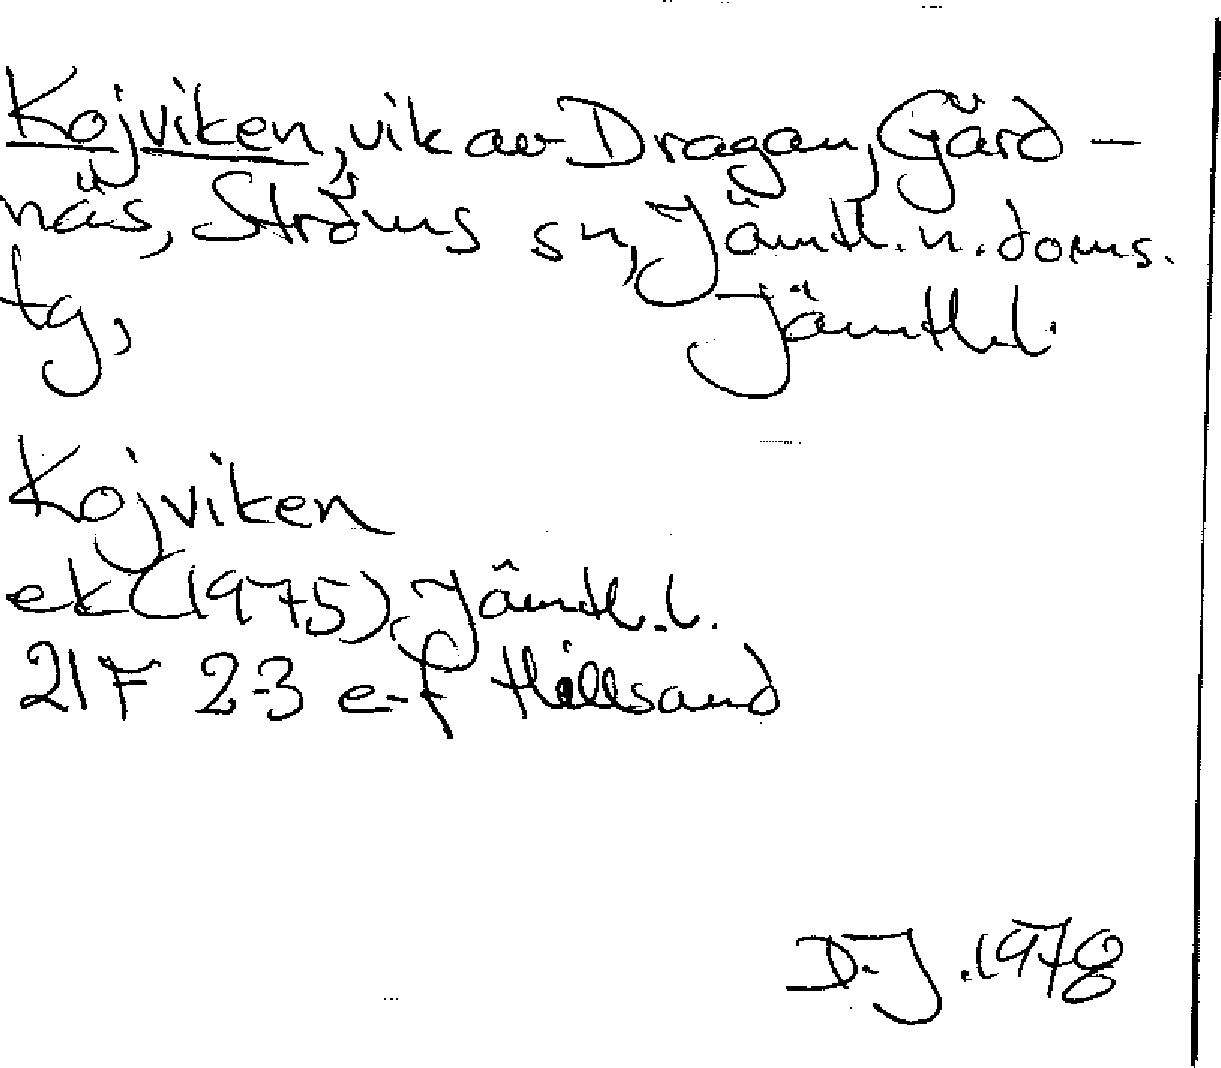 Kojviken, vik av Dragan, Gärd-
näs, Ströms sn, Jämtl. n. doms.
tg, Jämtl.l.
Kojviken
ek (1975) Jämtl. l.
21F 2-3 e-f Hillsand
D.J. 1978